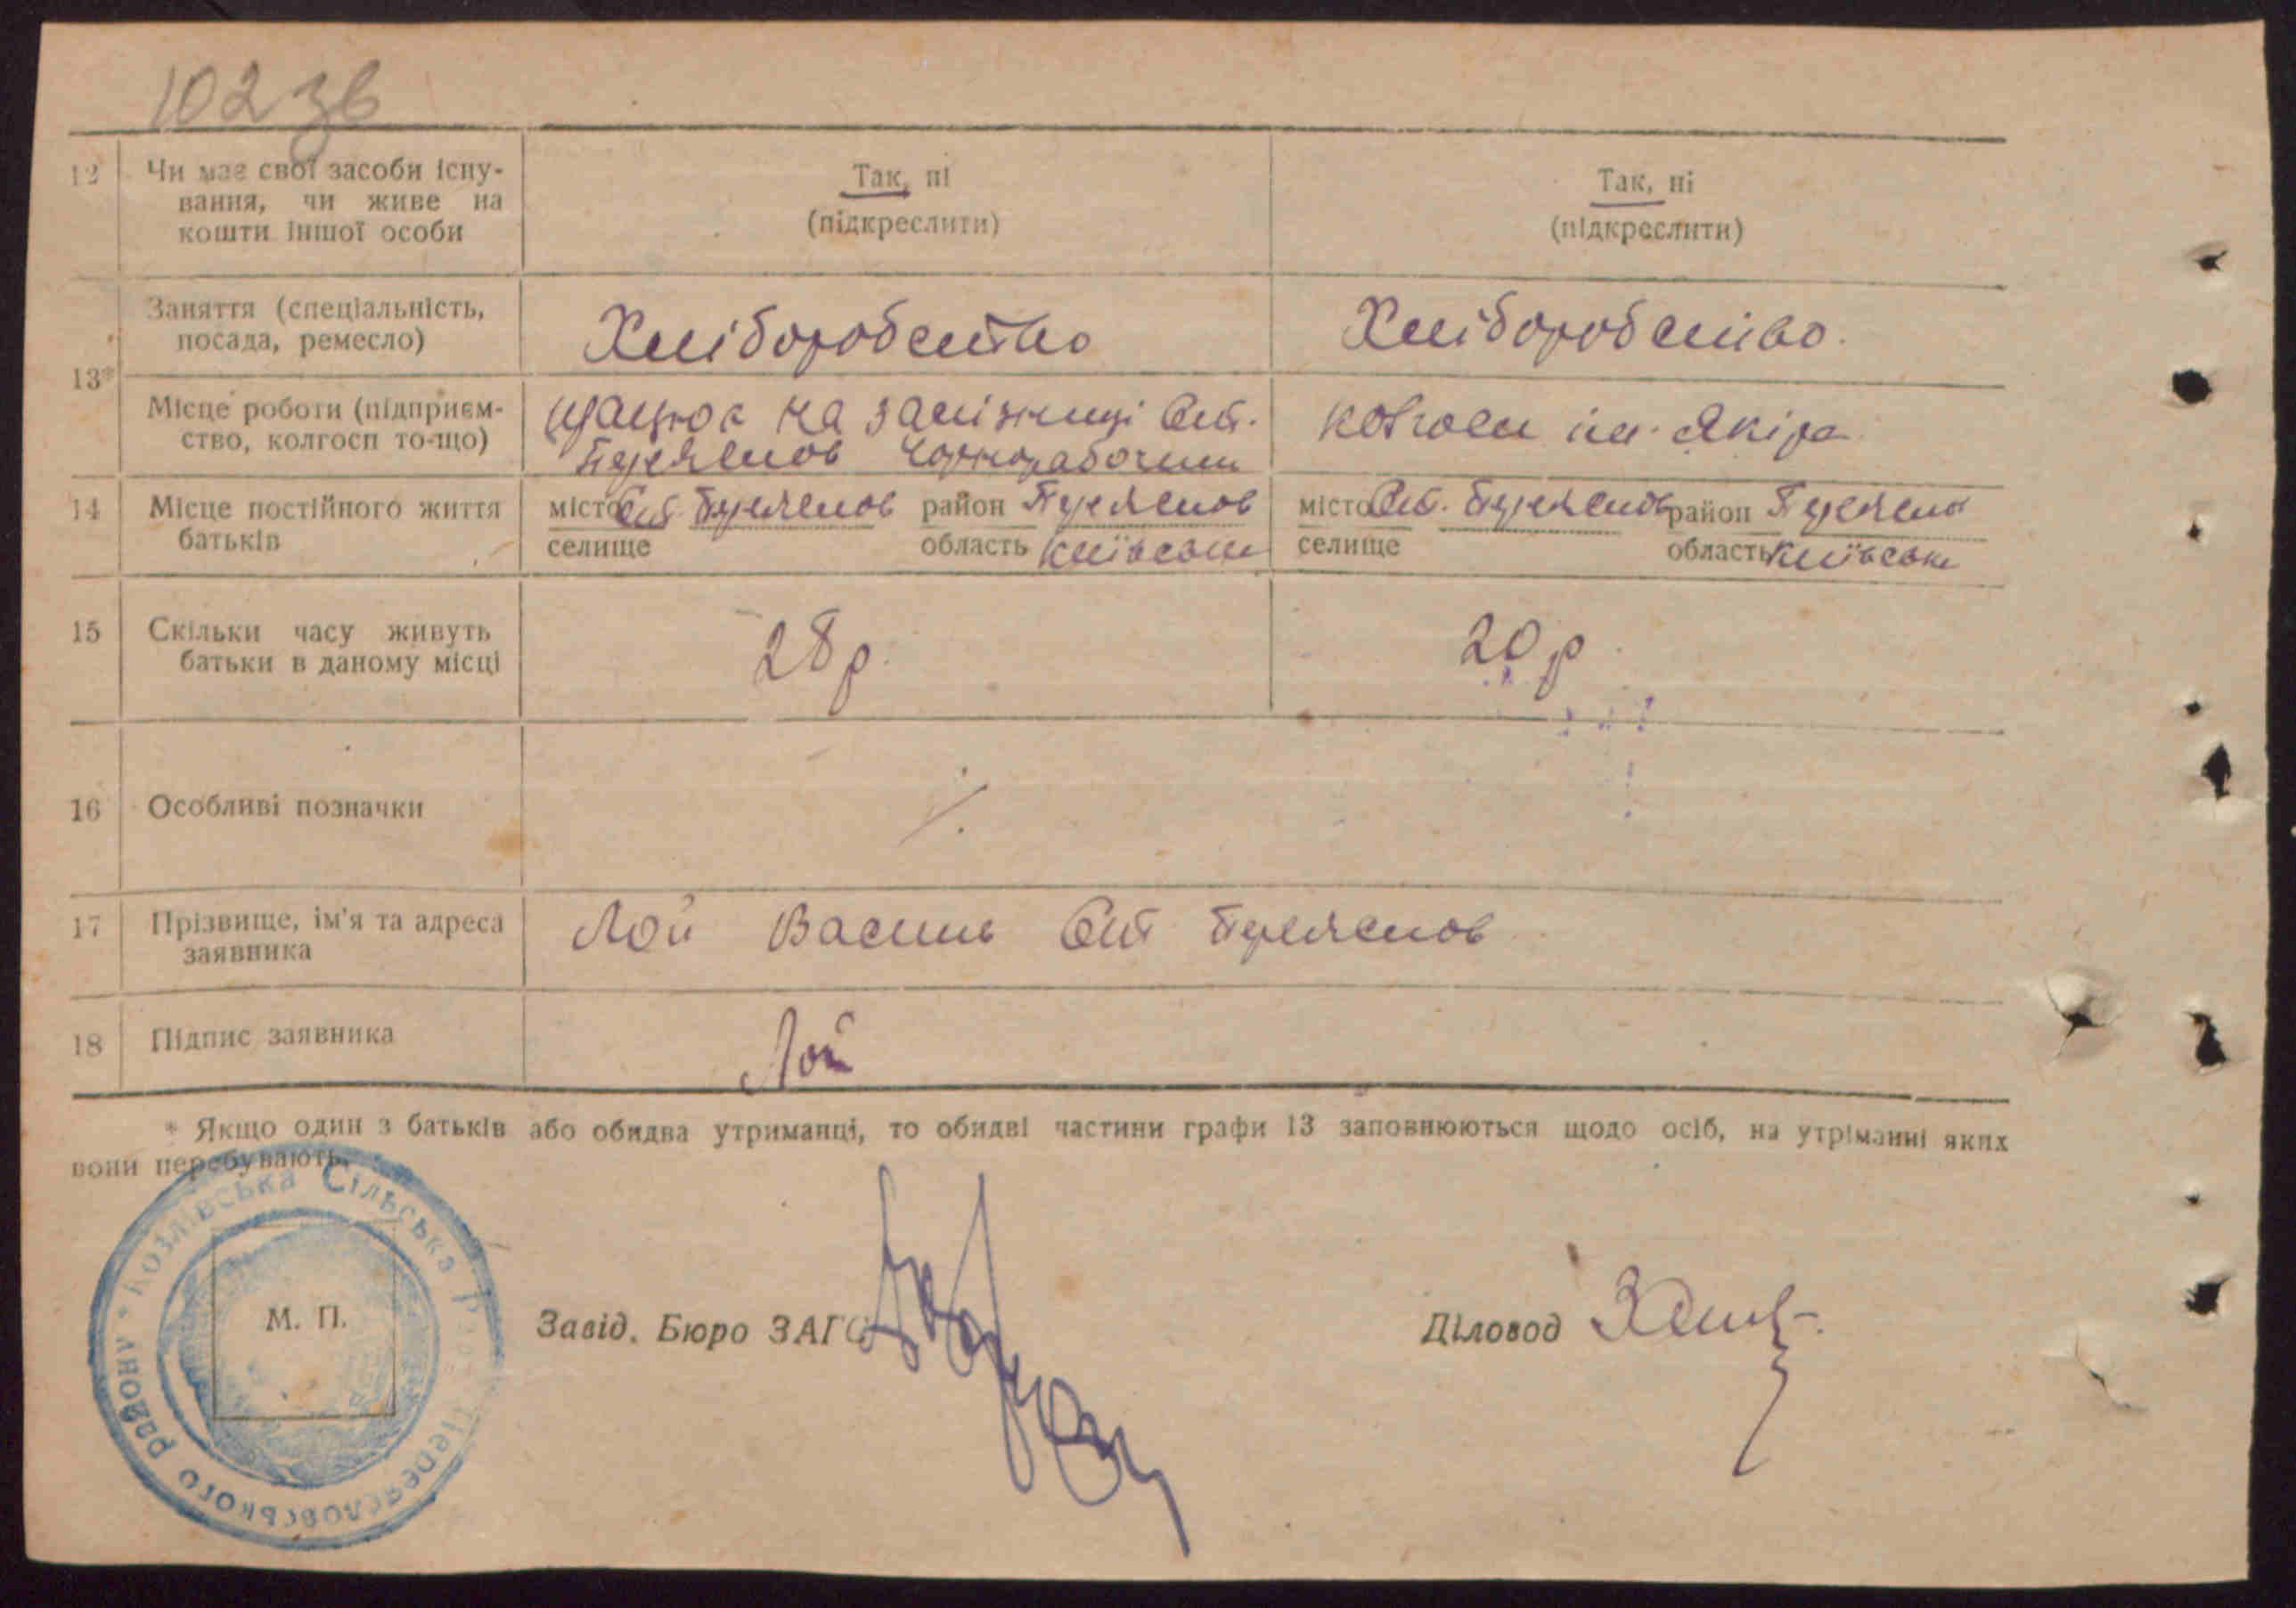 102 зв
12 Чи має свої засоби існу-
вання, чи живе на
кошти іншої особи
Так, ні
(підкреслити)
Так, ні
(підкреслити)
13*
Заняття (спеціальність,
посада, ремесло)
Хліборобство
Хліборобство.
Місце роботи (підприєм-
ство, колгосп то-що)
працює на залізниці Ст.
Переяслов Чорнорабочим
колгосп ім. Якіра
14 Місце постійного життя
батьків
місто Ст. Переяслов район Переяслов
селище область Київська
місто Ст. Переяслов район Переяслов
селище область Київська
15 Скільки часу живуть
батьки в даному місці
28 р.
20 р
16 Особливі позначки
17 Прізвище, ім'я та адреса
заявника
Лой Василь Ст Переяслов
18 Підпис заявника
Лой
* Якщо один з батьків або обидва утриманці, то обидві частини графи 13 заповнюються щодо осіб, на утріманні яких
вони перебувають.
Козлівська Сільська Рада Переясловського району
М. П.
Завід. Бюро ЗАГС
Діловод